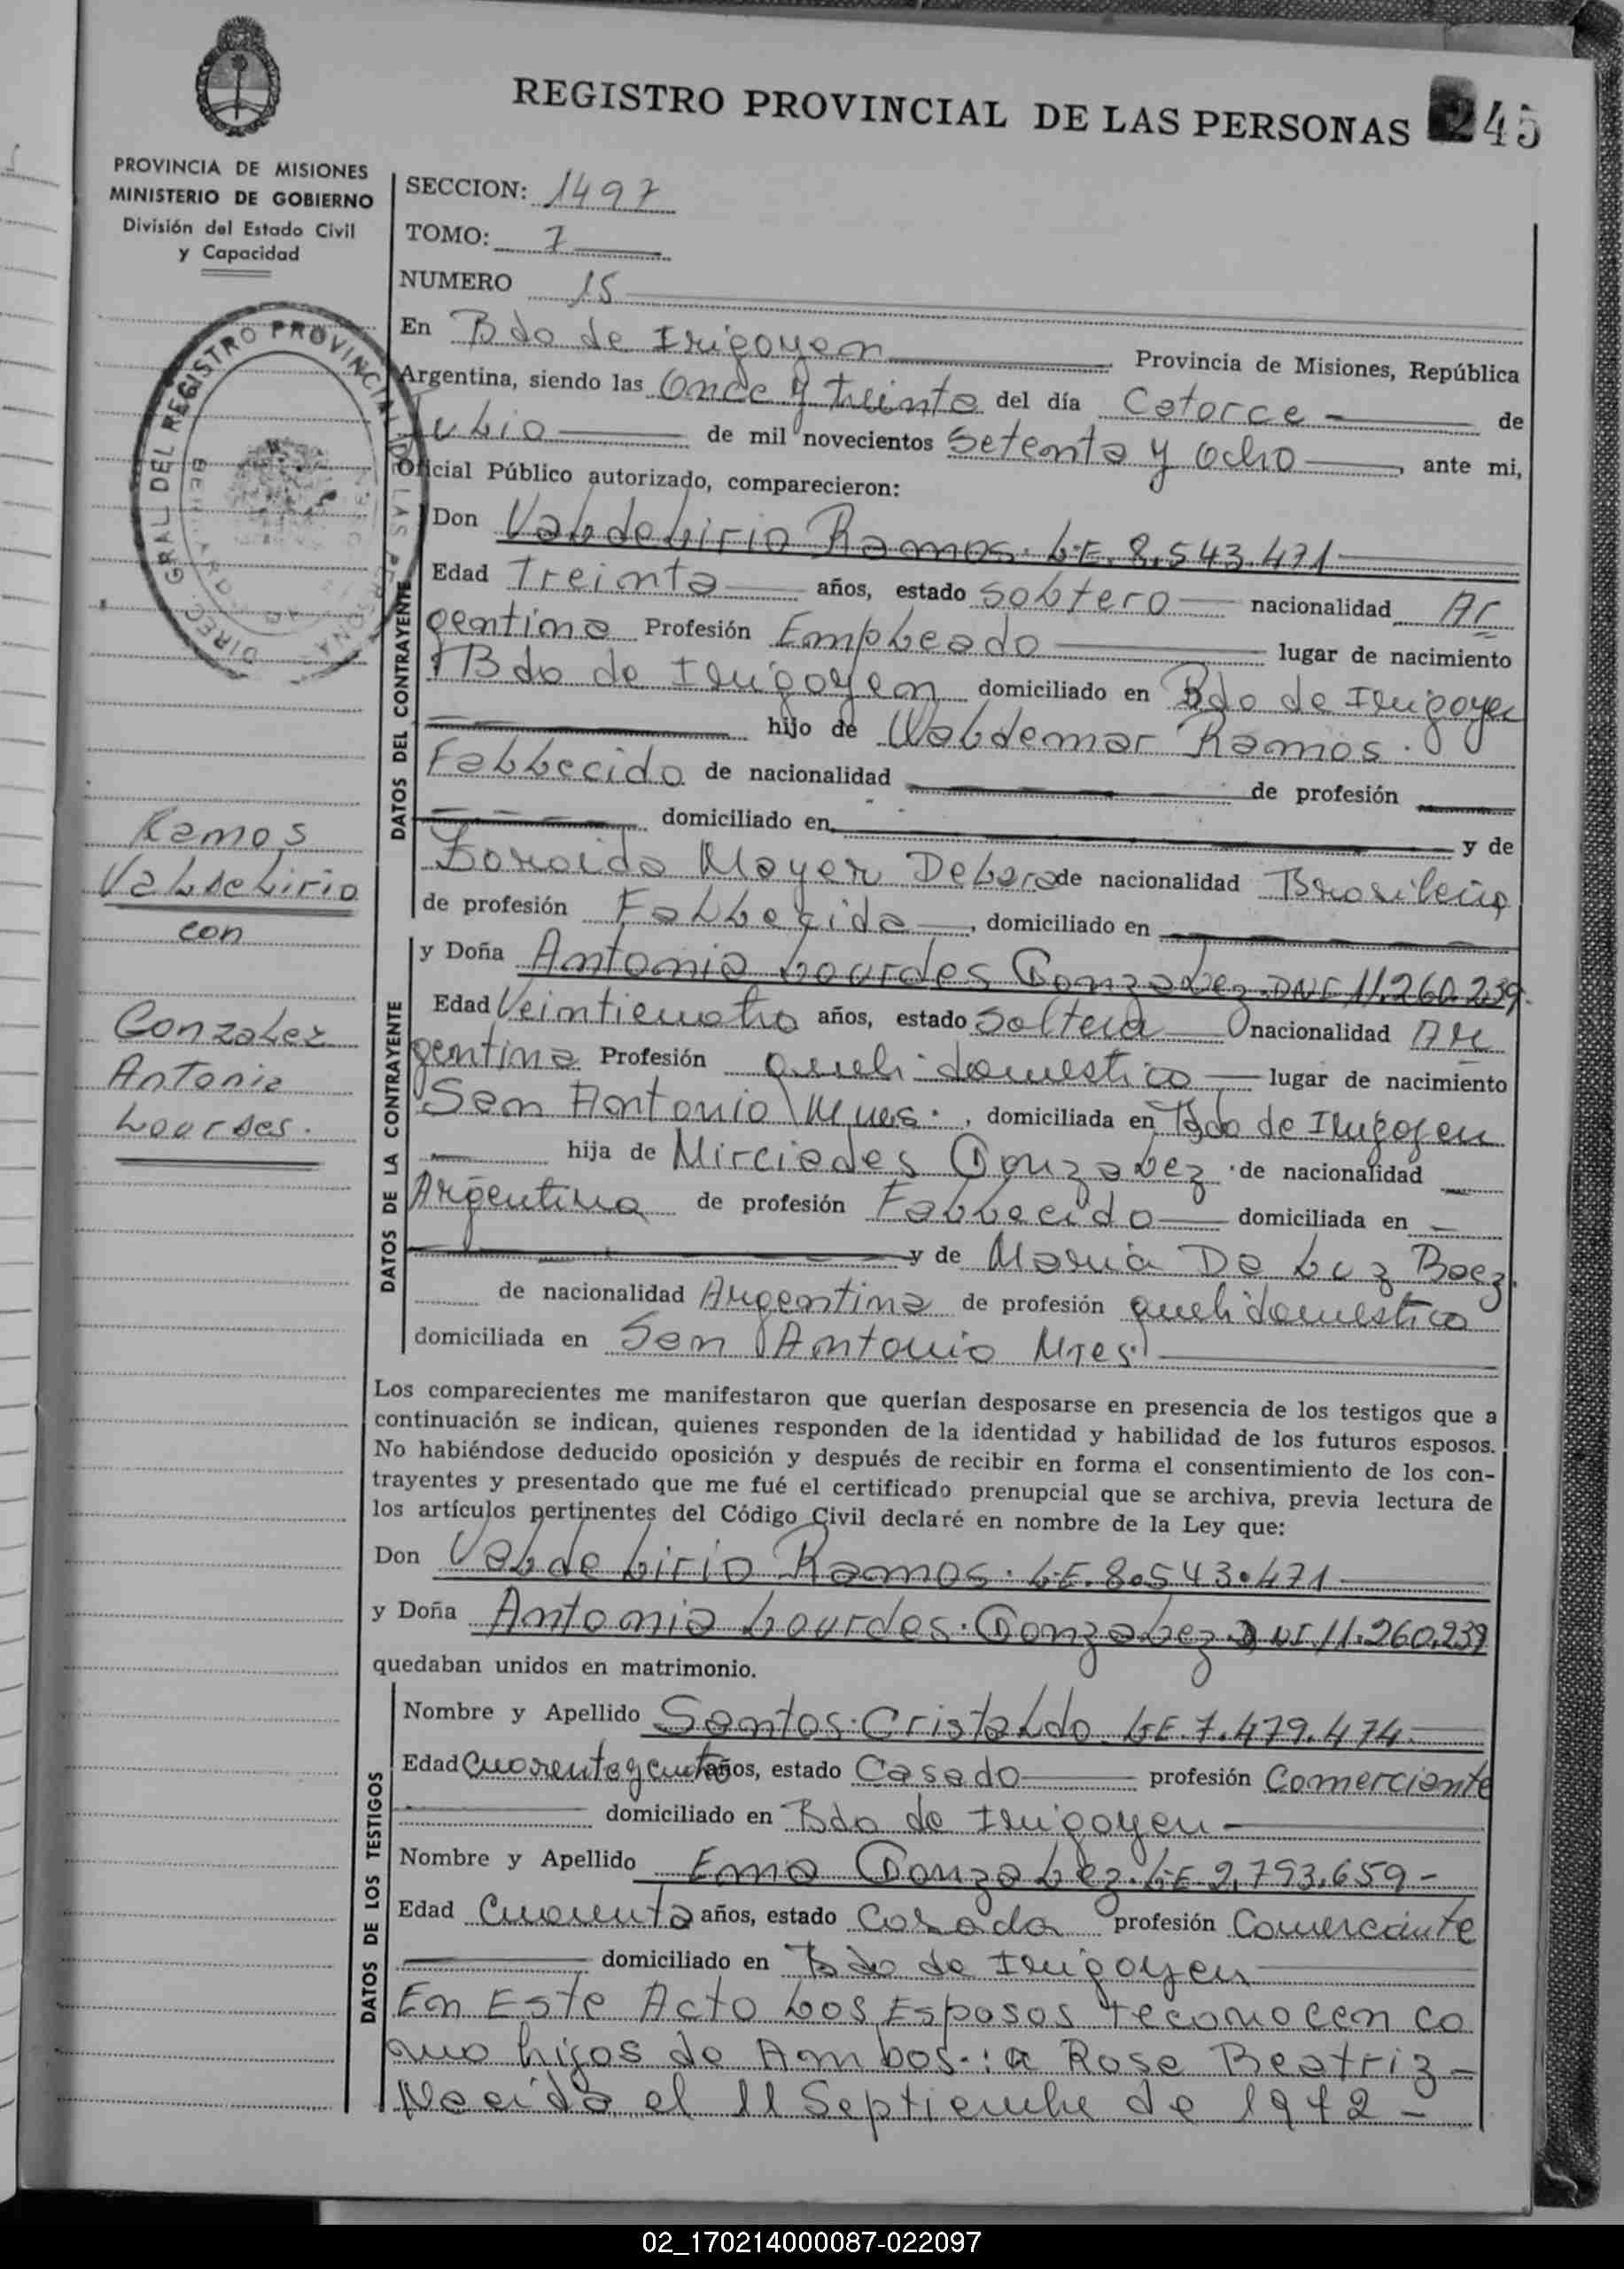 REGISTRO PROVINCIAL DE LAS PERSONAS 245
PROVINCIA DE MISIONES
MINISTERIO DE GOBIERNO
División del Estado Civil
y Capacidad
SECCION: 1497
TOMO: 7
NUMERO 15
DIREC. GRAL DEL REGISTRO PROVINCIAL DE LAS PERSONAS
En Bdo de Irigoyen Provincia de Misiones, República
Argentina, siendo las Once y treinta del día Catorce de
Julio de mil novecientos Setenta y Ocho, ante mi,
Oficial Público autorizado, comparecieron:
DATOS DEL CONTRAYENTE
Don Valdelirio Ramos. L.E. 8.543.471
Edad Treinta años, estado Soltero nacionalidad Ar
gentina Profesión Empleado lugar de nacimiento
Bdo de Irigoyen domiciliado en Bdo de Irigoyen
hijo de Waldemar Ramos.
Fallecido de nacionalidad de profesión
domiciliado en y de
Zoroida Mayer Debora de nacionalidad Brasileña
de profesión Fallecida, domiciliado en
Ramos
Valdelirio
con
Gonzalez
Antonia
Lourdes.
DATOS DE LA CONTRAYENTE
y Doña Antonia Lourdes Gonzalez. DNI, 11.260.239.
Edad Veinticuatro años, estado Soltera nacionalidad Ar
gentina Profesión queh. domestico lugar de nacimiento
San Antonio Mnes., domiciliada en Bdo de Irigoyen
hija de Mirciades Gonzalez. de nacionalidad
Argentina de profesión Fallecido domiciliada en
y de Maria De Luz Baez.
de nacionalidad Argentina de profesión queh domestico
domiciliada en San Antonio Mnes.
Los comparecientes me manifestaron que querían desposarse en presencia de los testigos que a
continuación se indican, quienes responden de la identidad y habilidad de los futuros esposos.
No habiéndose deducido oposición y después de recibir en forma el consentimiento de los con-
trayentes y presentado que me fué el certificado prenupcial que se archiva, previa lectura de
los artículos pertinentes del Código Civil declaré en nombre de la Ley que:
Don Valdelirio Ramos. L.E. 8.543.471
y Doña Antonia Lourdes. Gonzalez DNI, 11.260.239
quedaban unidos en matrimonio.
DATOS DE LOS TESTIGOS
Nombre y Apellido Santos. Cristaldo. L.E. 7.479.474.
Edad Cuarenta y cuatro años, estado Casado profesión Comerciante
domiciliado en Bdo de Irigoyen
Nombre y Apellido Ema Gonzalez. L.E. 2,793.659-
Edad Cuarenta años, estado Casada profesión Comerciante
domiciliado en Bdo de Irigoyen
En Este Acto Los Esposos reconocen co
mo hijos de Ambos.: a Rosa Beatriz-
Nacida el 11 Septiembre de 1972-
02_170214000087-022097